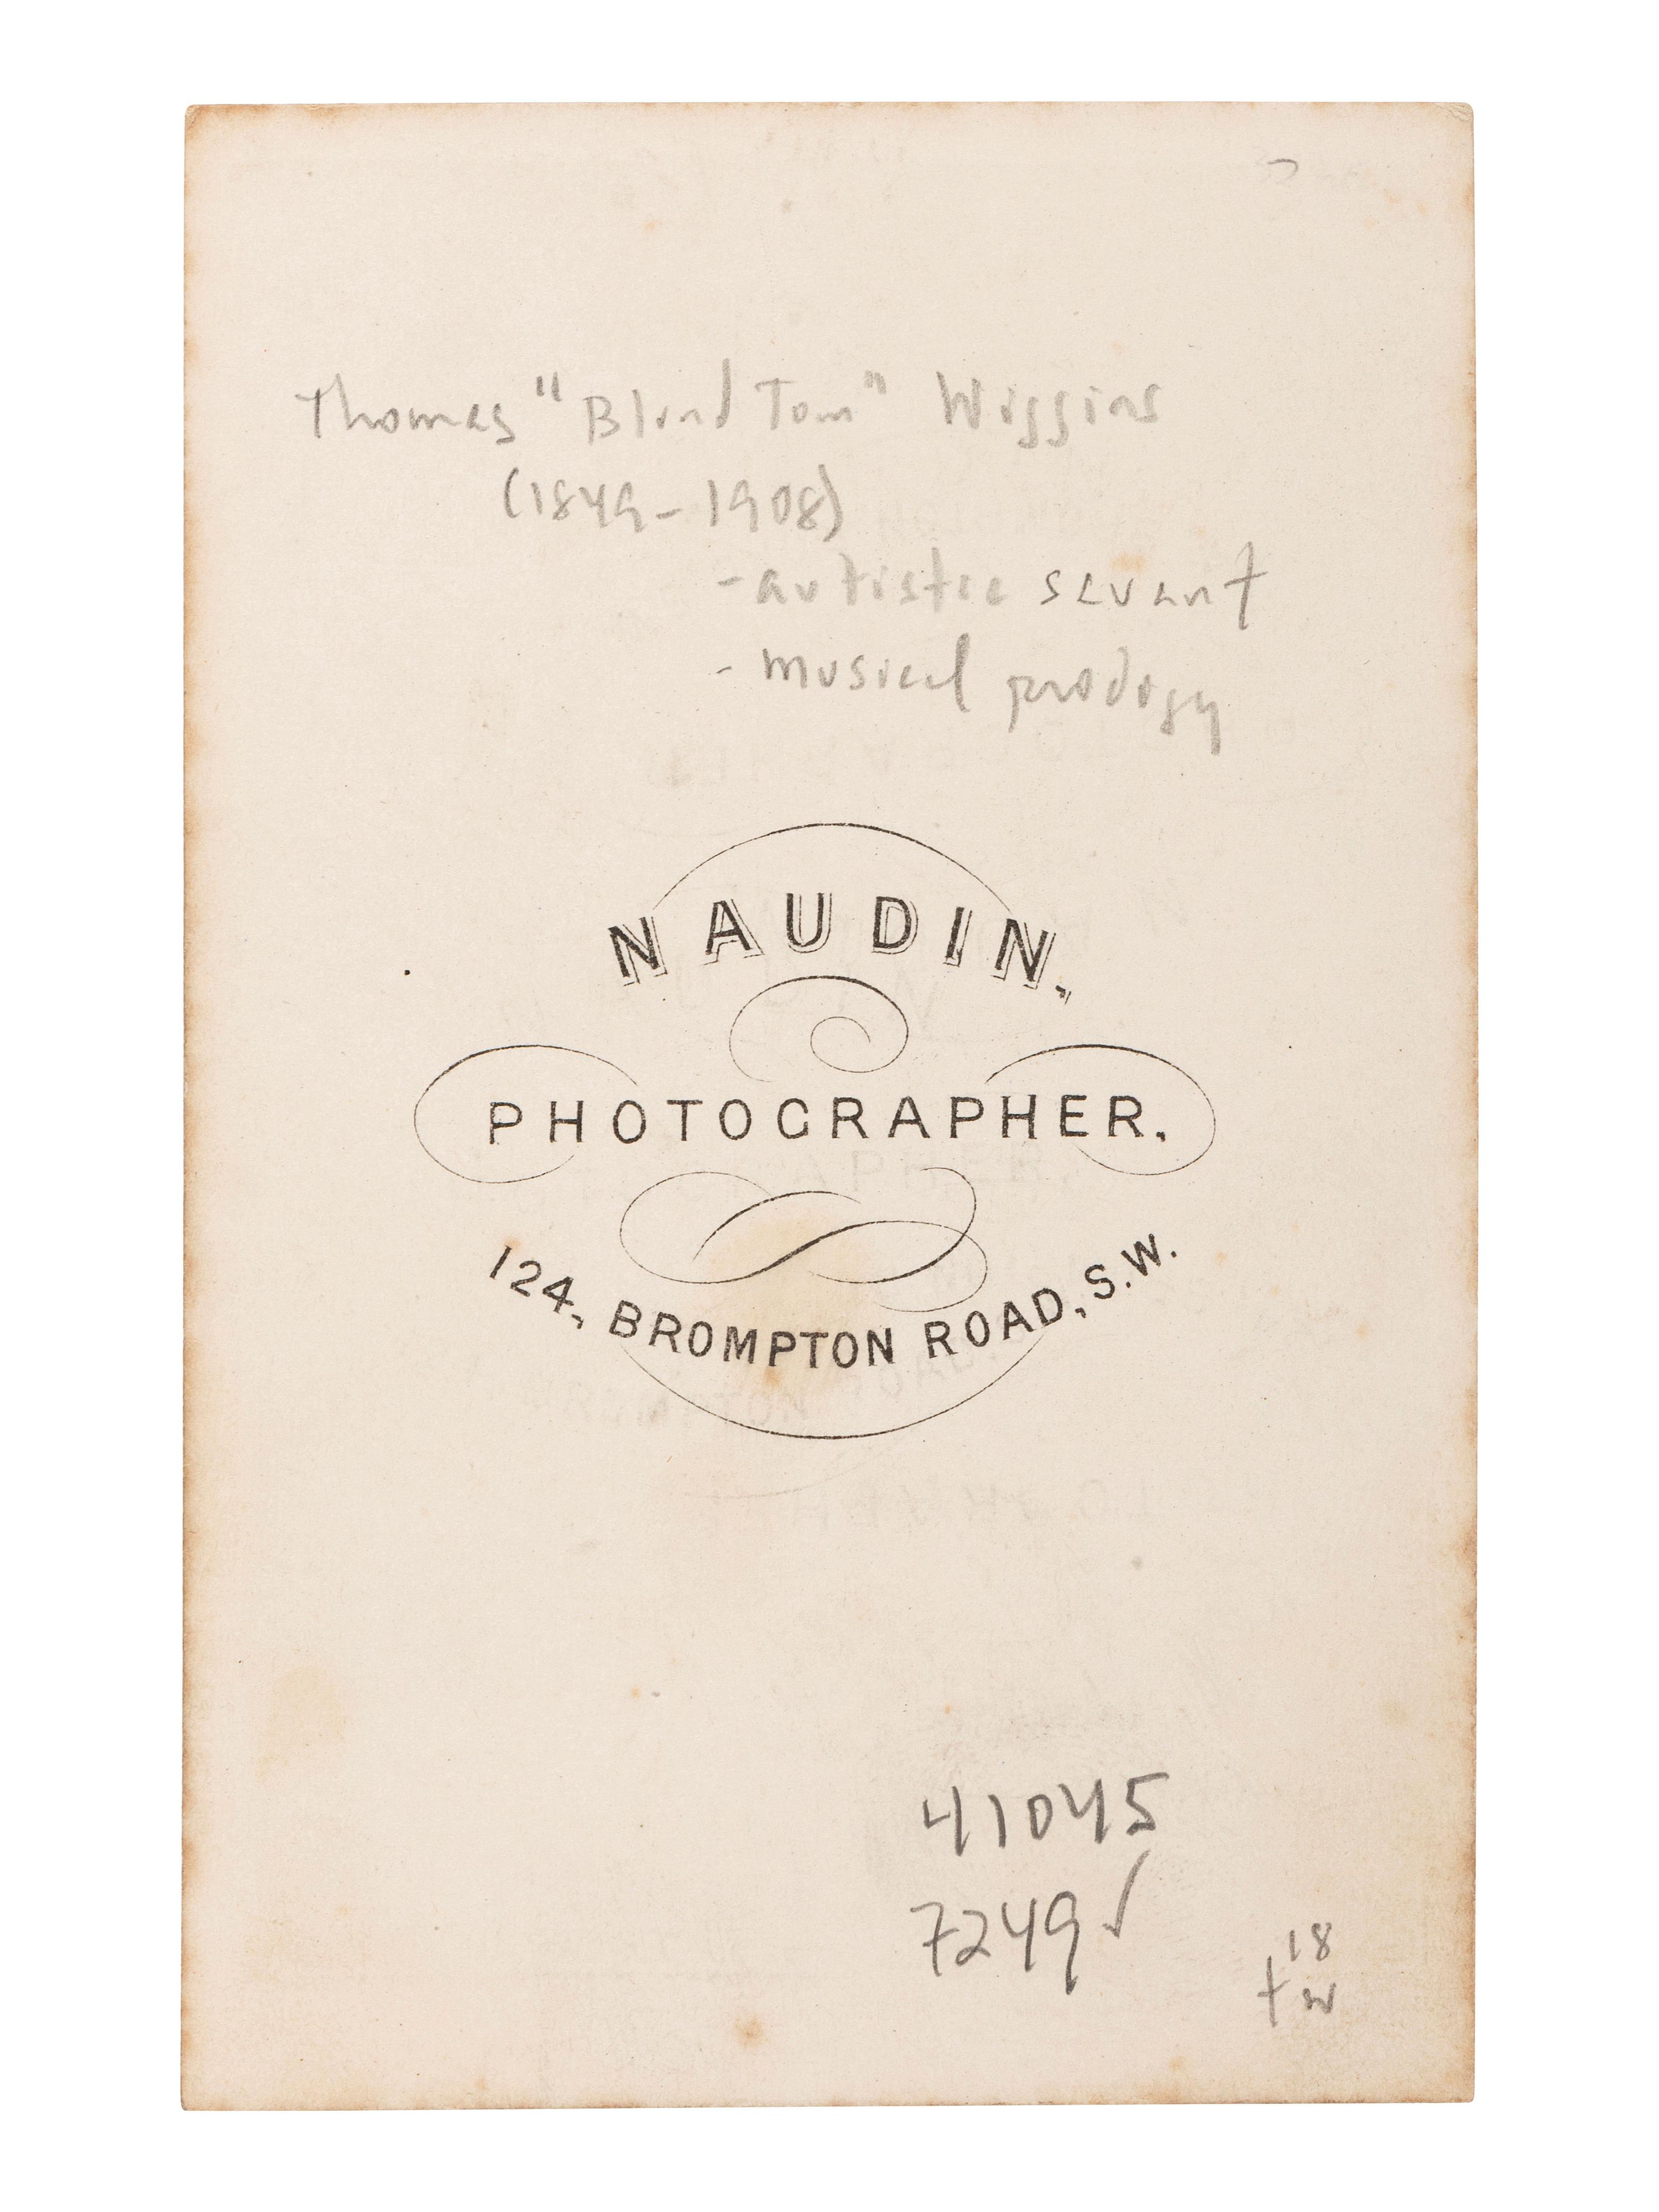 Thomas "Blind Tom" Wiggins
(1849-1908)
- autistic savant
- musical prodigy
NAUDIN,
PHOTOGRAPHER.
124, BROMPTON ROAD, S.W.
41045
7249✓
18